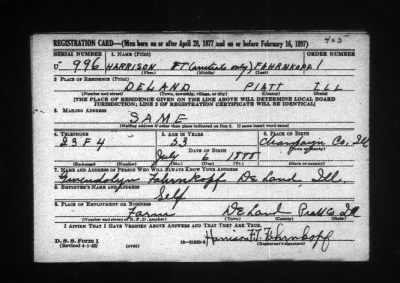 405
REGISTRATION CARD—(Men born on or after April 28, 1877 and on or before February 16, 1897)
SERIAL NUMBER 1. NAME (Print) ORDER NUMBER
U 996 HARRISON F.T. (initials only) FAHRNKOPF
(First) (Middle) (Last)
2. PLACE OF RESIDENCE (Print)
DELAND PIATT ILL
(Number and street) (Town, township, village, or city) (County) (State)
[THE PLACE OF RESIDENCE GIVEN ON THE LINE ABOVE WILL DETERMINE LOCAL BOARD
JURISDICTION; LINE 2 OF REGISTRATION CERTIFICATE WILL BE IDENTICAL]
3. MAILING ADDRESS
SAME
[Mailing address if other than place indicated on line 2. If same insert word same]
4. TELEPHONE 5. AGE IN YEARS 6. PLACE OF BIRTH
23 F 4 53 Champaign Co.
DATE OF BIRTH (Town or county)
July 6 1888
(Exchange) (Number) (Mo.) (Day) (Yr.) (State or country)
7. NAME AND ADDRESS OF PERSON WHO WILL ALWAYS KNOW YOUR ADDRESS
Gwendolyn Fahrnkopf DeLand, Ill.
8. EMPLOYER'S NAME AND ADDRESS
Self
9. PLACE OF EMPLOYMENT OR BUSINESS
Farm DeLand Piatt Co Ill
(Number and street or R. F. D. number) (Town) (County) (State)
I AFFIRM THAT I HAVE VERIFIED ABOVE ANSWERS AND THAT THEY ARE TRUE.
D. S. S. Form 1 Harrison F.T. Fahrnkopf
(Revised 4-1-42) (over) 16—21630-2 (Registrant's signature)